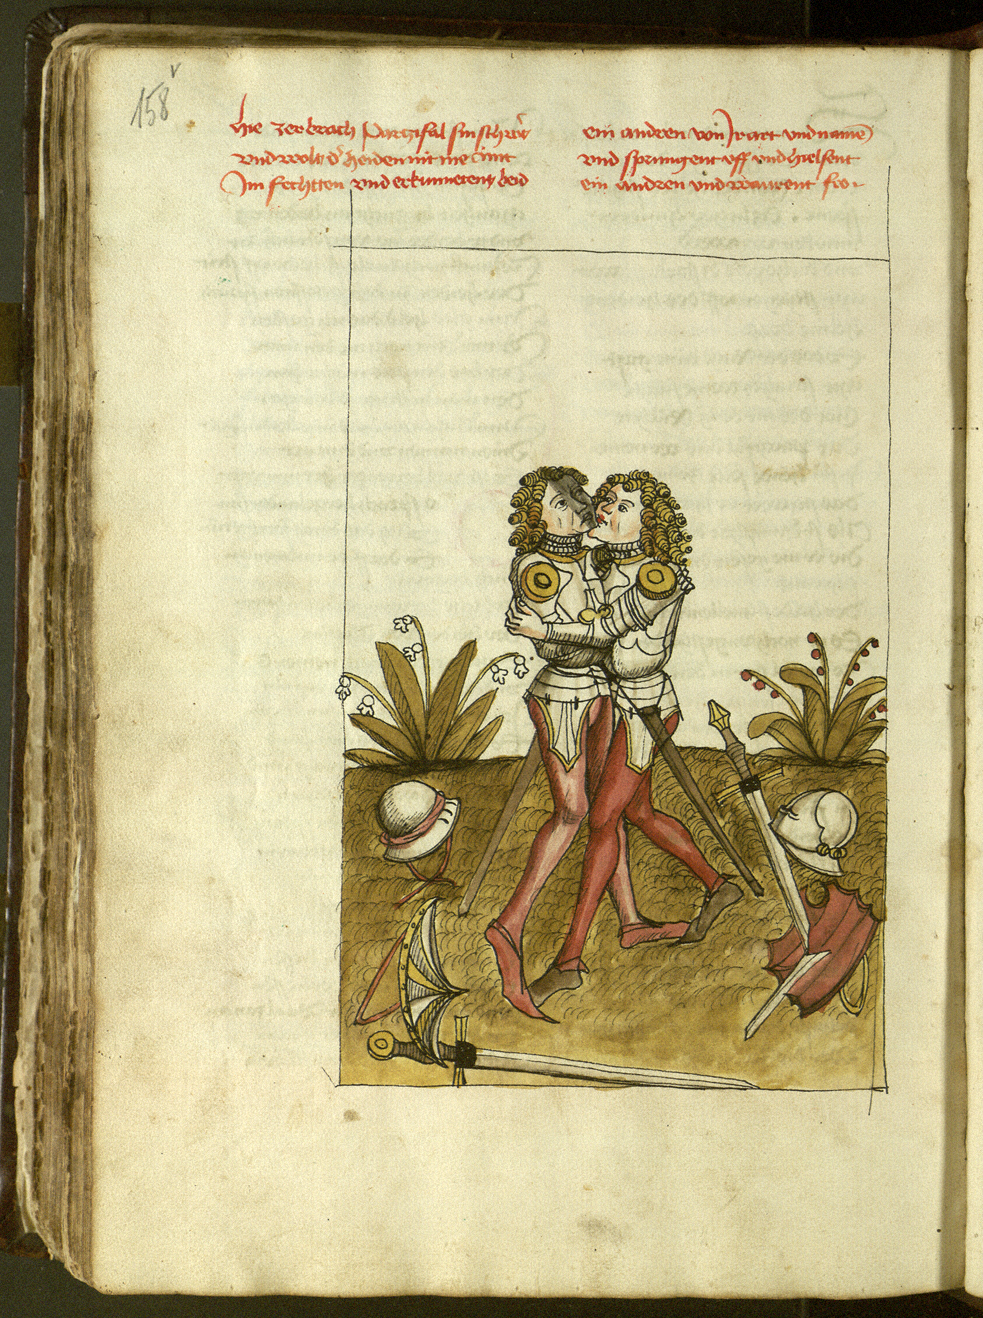 158 v
hie zerbrach Parczifal sin schwert
vnd wolt der heiden nit me mit
Im fechtten vnd erkunnetent beid
ein andren von Ir art vnd namen
vnd sprungent vff vnd hielsent
ein andren vnd wurent fro